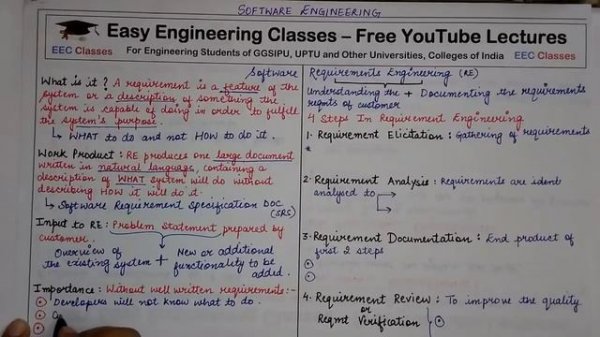 SOFTWARE ENGINEERING
Easy Engineering Classes – Free YouTube Lectures
EEC Classes For Engineering Students of GGSIPU, UPTU and Other Universities, Colleges of India EEC Classes
Software
What is it? A requirement is a feature of the
system or a description of something the
system is capable of doing in order to fulfill
the system's purpose.
↳ WHAT to do and not HOW to do it.
Work Product: RE produces one large document
written in natural language, containing a
description of WHAT system will do without
describing HOW it will do it.
↳ Software Requirement Specification DOC
(SRS)
Input to RE: Problem statement prepared by
customer.
Overview of the existing system + New or additional functionality to be added.
Importance: Without well written requirements:-
Developers will not know what to do.
Requirements Engineering (RE)
Understanding the + Documenting the requirements
reqmts of customer
4 Steps In Requirement Engineering
1· Requirement Elicitation: Gathering of requirements
2· Requirement Analysis: Requirements are identi
analysed to
3· Requirement Documentation: End product of
first 2 steps
4. Requirement Review: To improve the quality
or
Reqmt Verification